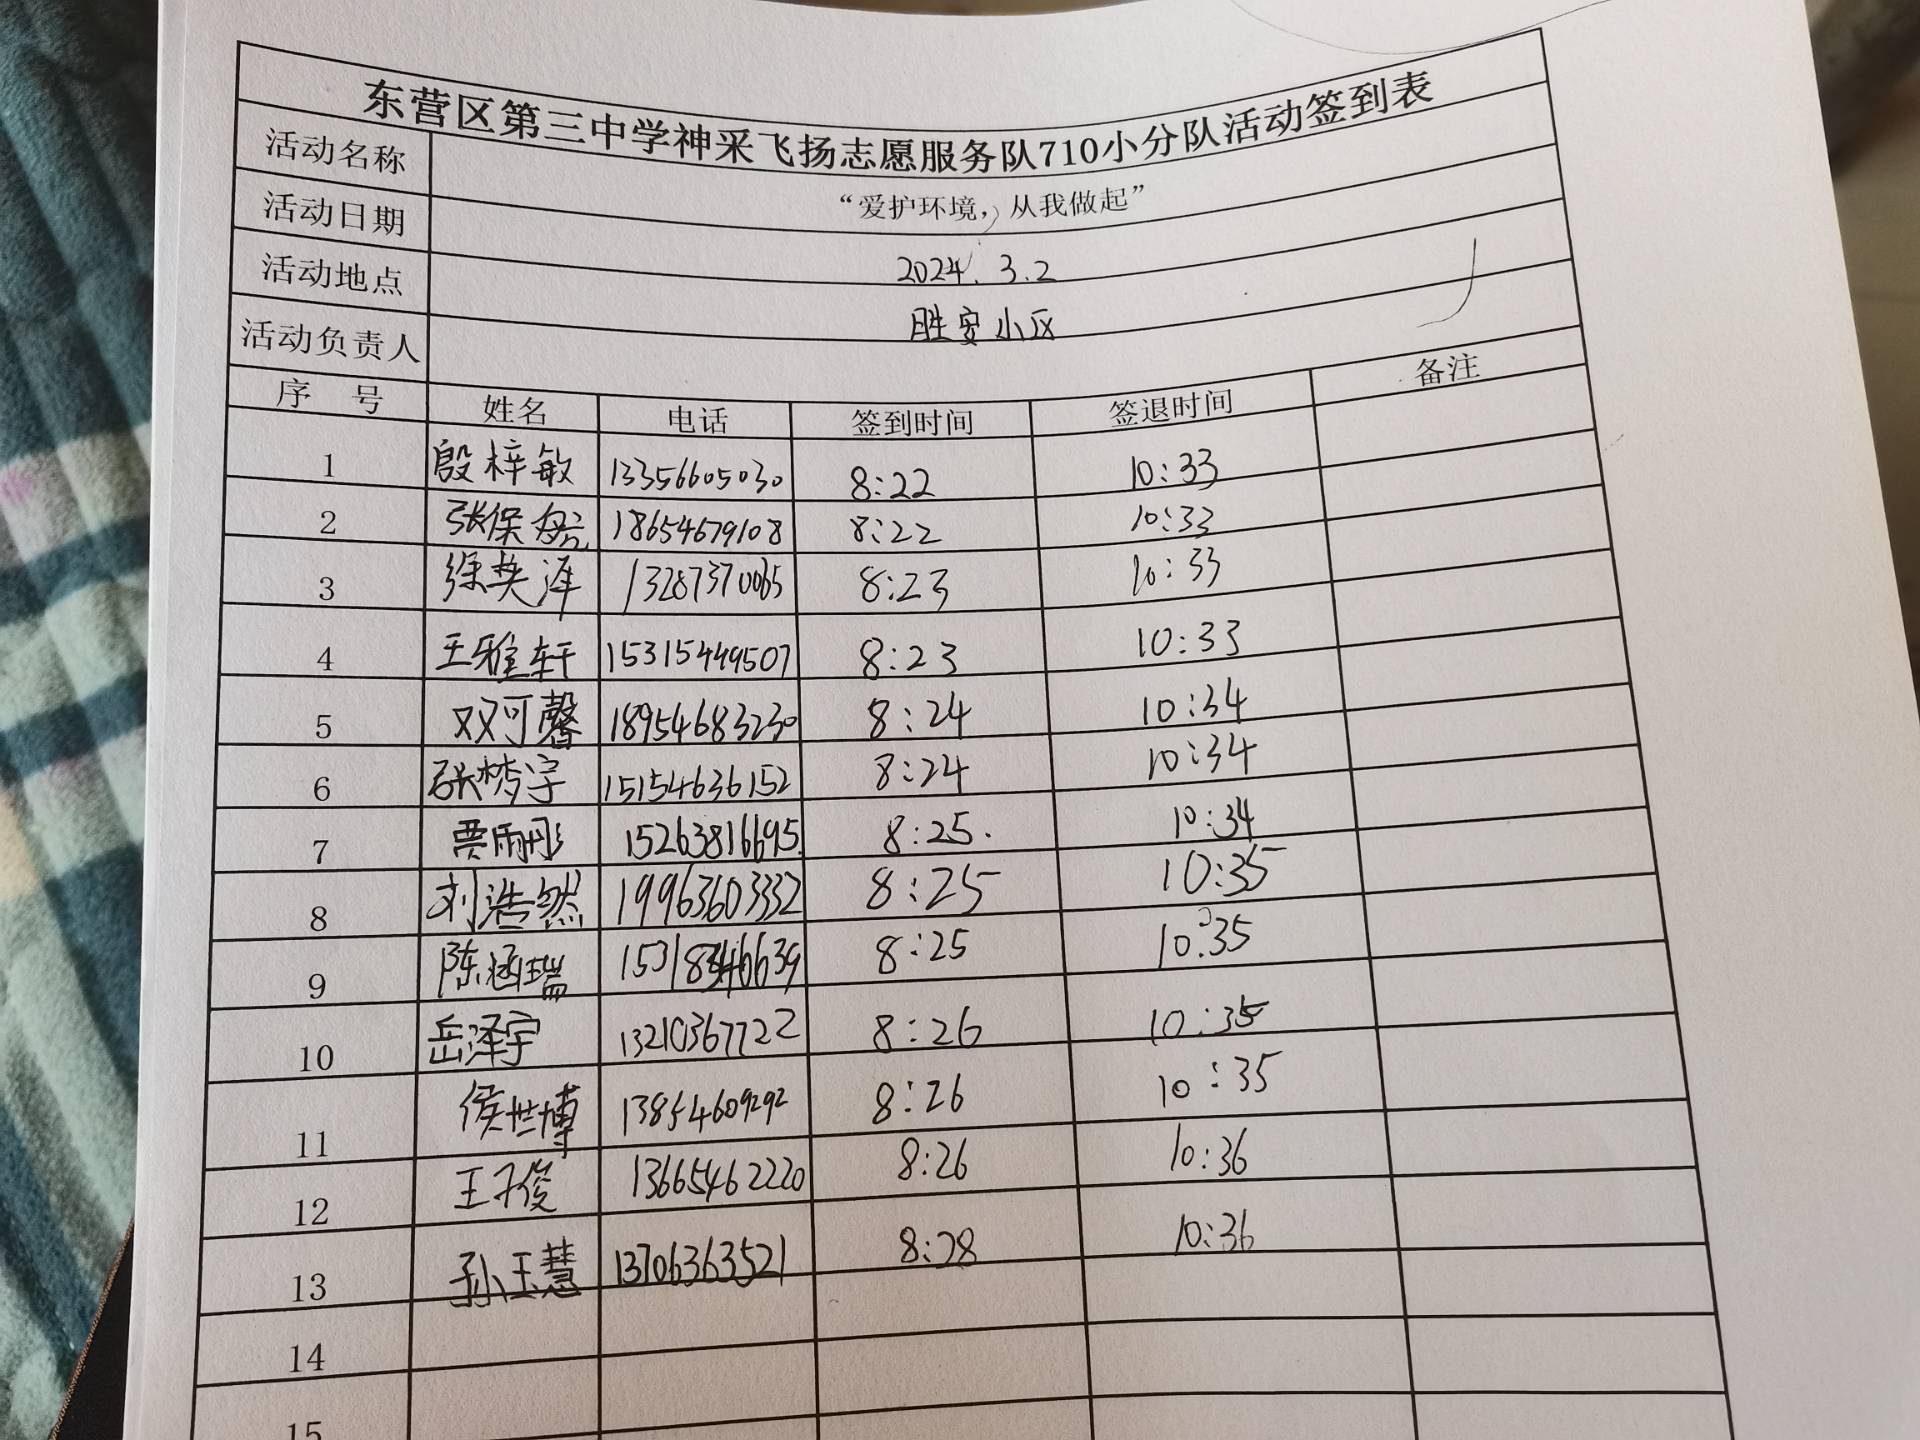 东营区第三中学神采飞扬志愿服务队710小分队活动签到表
活动名称 “爱护环境，从我做起”
活动日期 2024.3.2
活动地点 胜安小区
活动负责人
序 号 姓名 电话 签到时间 签退时间 备注
1 殷梓敏 13356605030 8:22 10:33
2 张保 18654679108 8:22 10:33
3 徐英泽 13287370065 8:23 10:33
4 王雅轩 15315449507 8:23 10:33
5 双可馨 18954683230 8:24 10:34
6 张梦宇 15154636152 8:24 10:34
7 贾雨彤 15263816695 8:25 10:34
8 刘浩然 19963603332 8:25 10:35
9 陈涵瑞 8:25 10:35
10 岳泽宇 13210367722 8:26 10:35
11 侯世博 13854609292 8:26 10:35
12 王子俊 13665462220 8:26 10:36
13 孙玉慧 13706363521 8:28 10:36
14
15